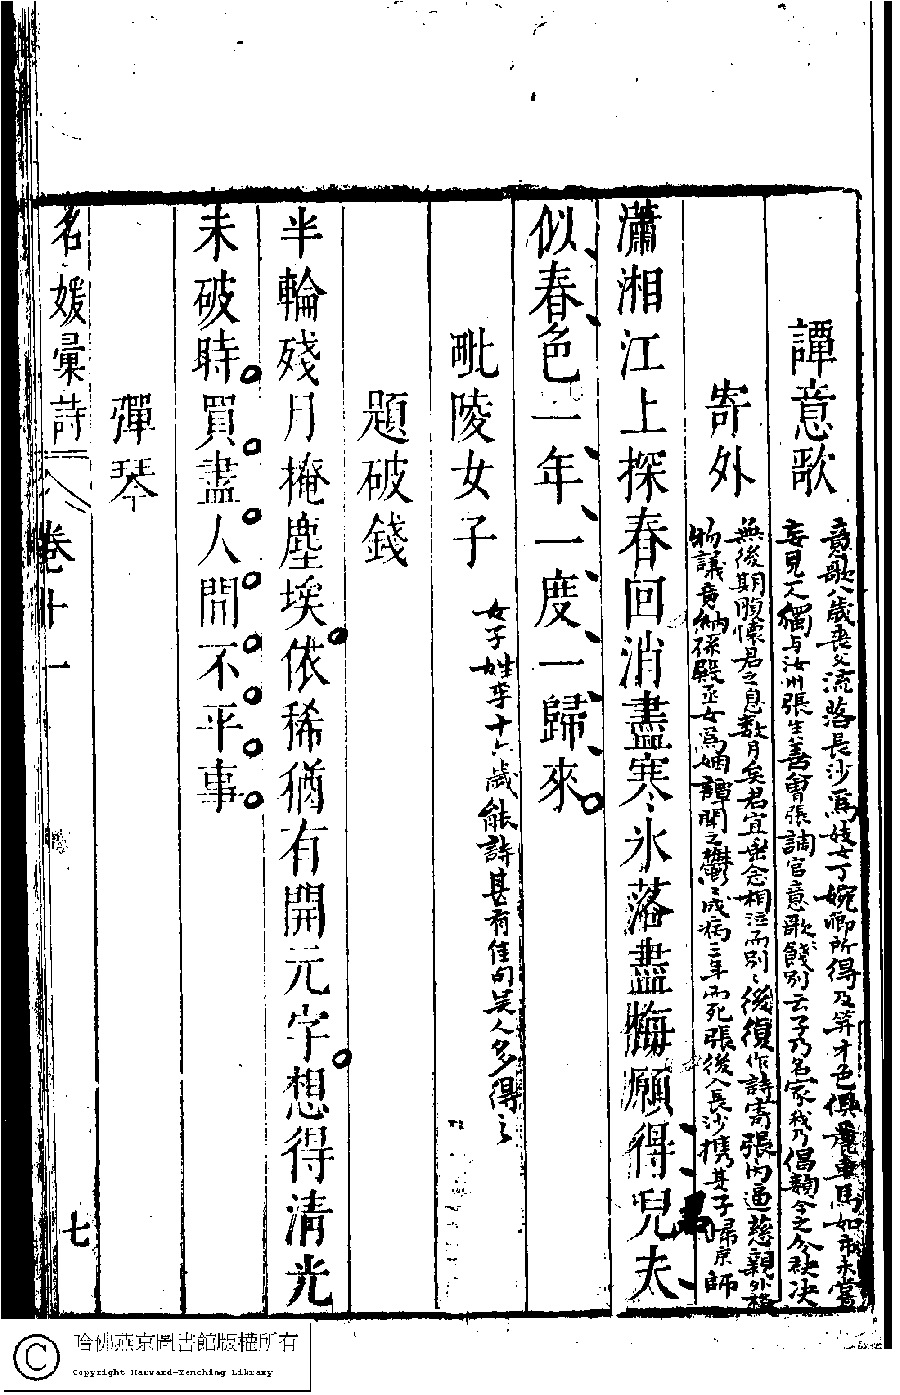 譚意歌
意歌八歲喪父流落長沙爲妓女丁婉卿所得及笄才色俱麗車馬如市未嘗
妄見人獨与汝州張生善會張調官意歌餞別云子乃名家我乃倡類今之分袂决
寄外
無後期腹懷君之息數月矣君宜垂念相泣而別〻後復作詩寄張內逼慈親外
物議竟納孫殿丞女爲姻譚聞之鬱〻成病三年而死張後入長沙攜其子歸京師
瀟湘江上探春回消盡寒冰落盡梅願得兒夫
似春色一年一度一歸來
毗陵女子
女子姓李十六歲能詩甚有佳句吳人多得之
題破錢
半輪殘月掩塵埃依稀猶有開元字想得清光
未破時買盡人間不平事
彈琴
名媛彙詩 卷十一 七
哈佛燕京圖書館版權所有
Copyright Harvard-Yenching Library